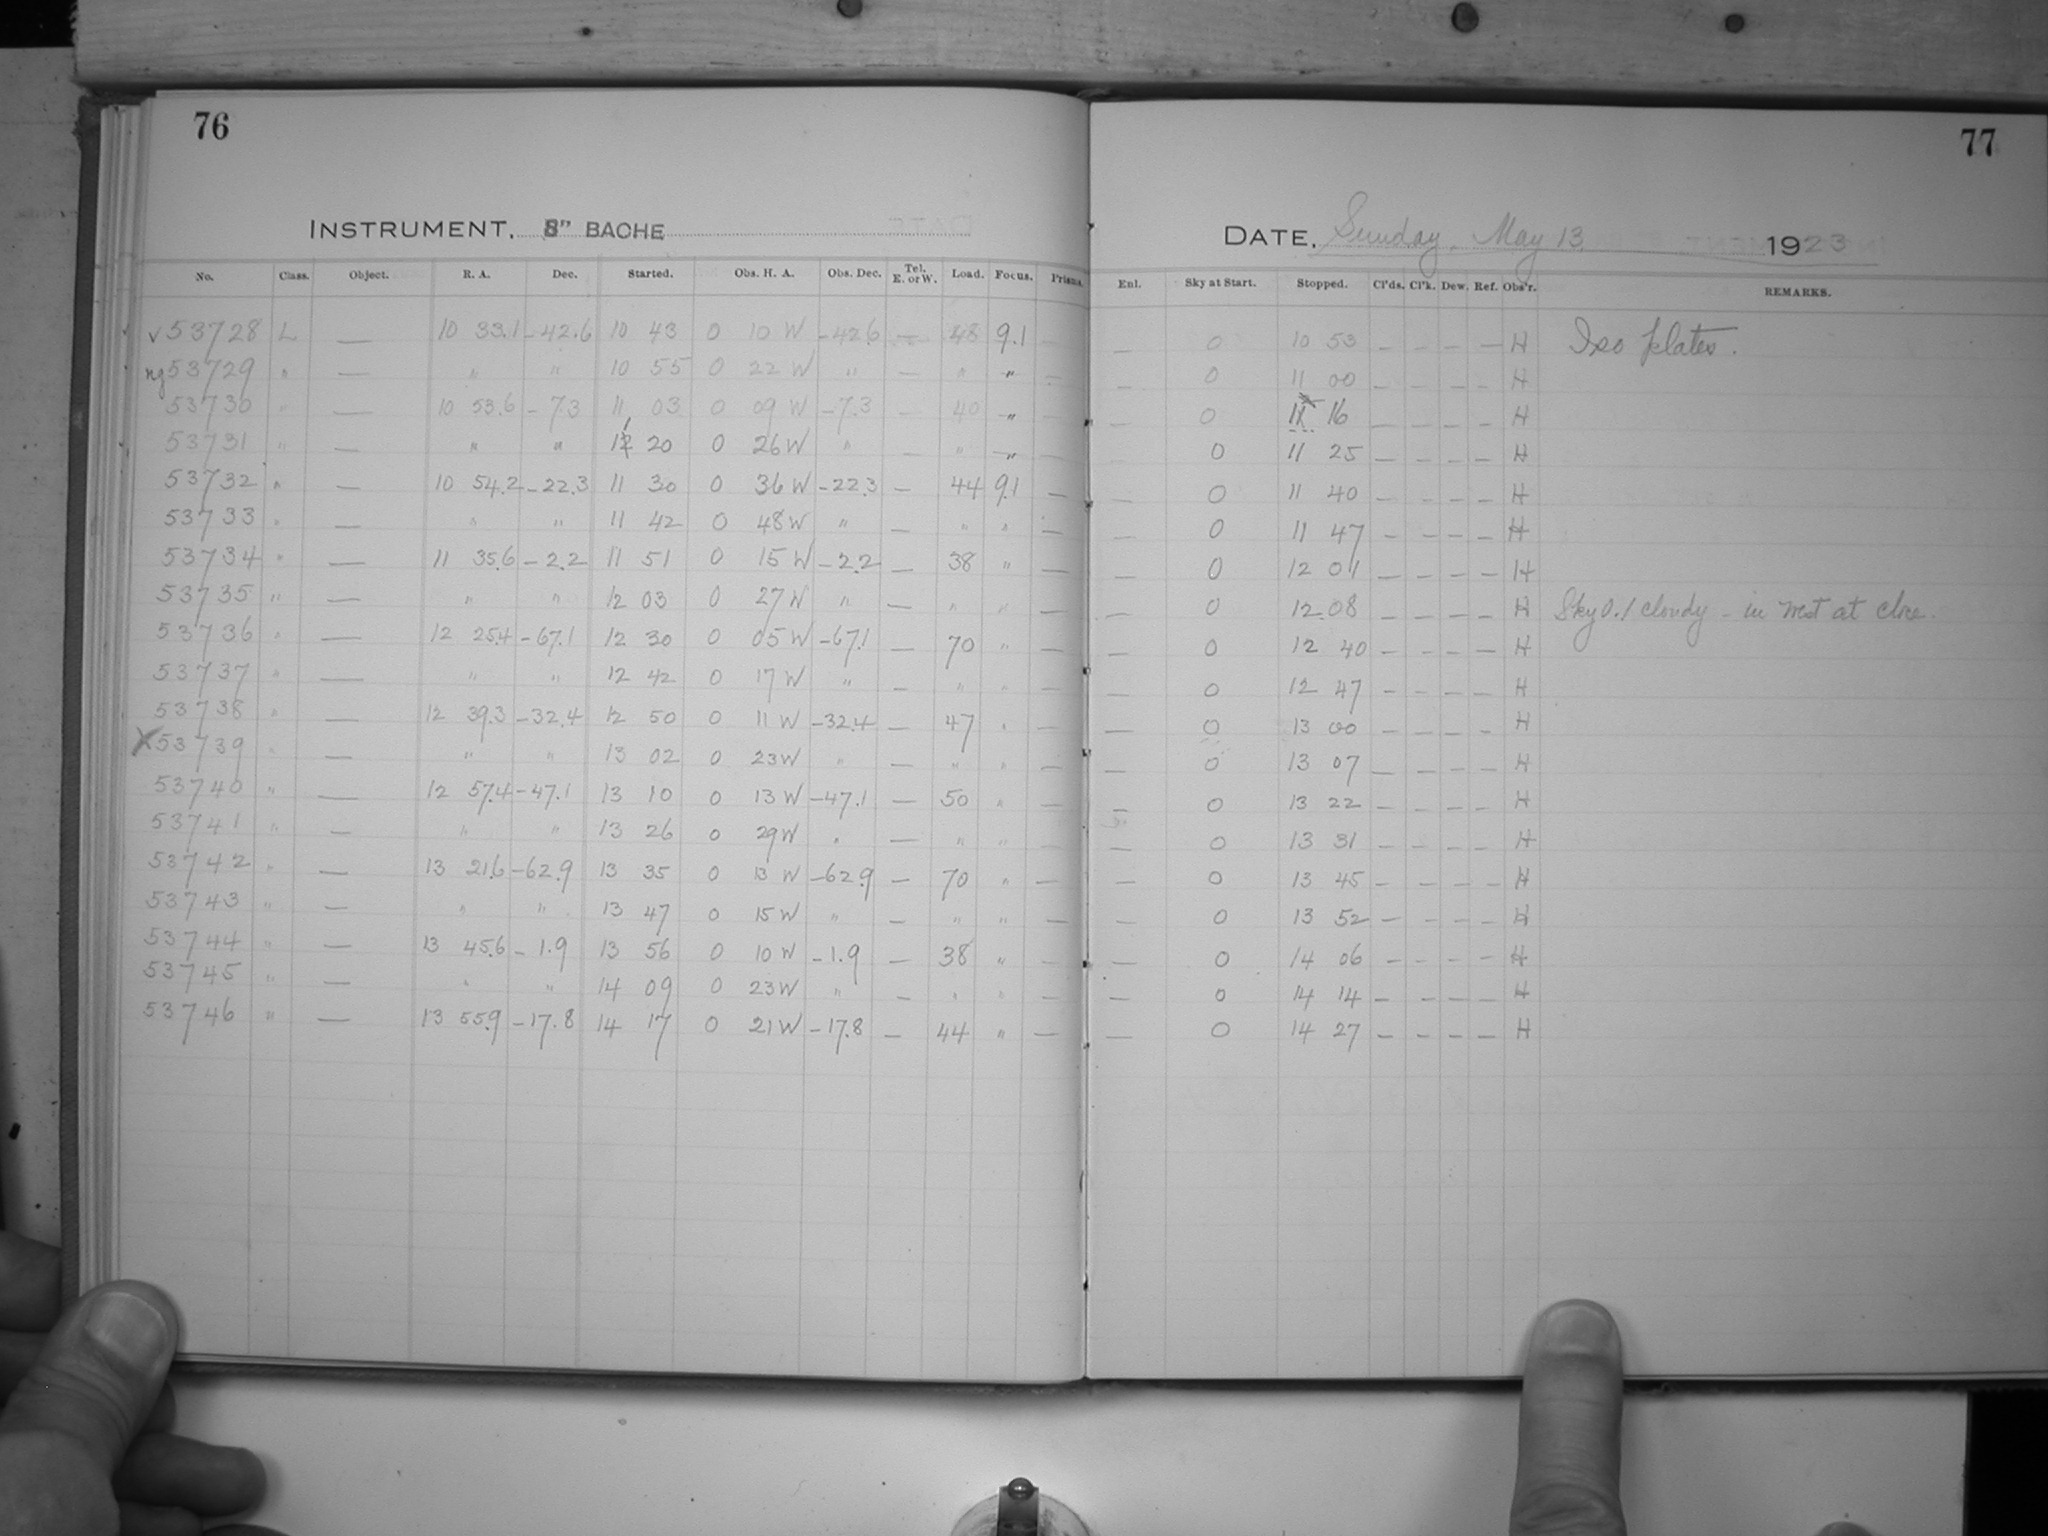 76
INSTRUMENT, 8" BACHE
No. Class. Object. R. A. Dec. Started. Obs. H. A. Obs. Dec. Tel. E. or W. Load. Focus. Prisms.
v 53728 L — 10 33.1 -42.6 10 43 0 10 W -42.6 — 48 9.1 —
ng 53729 " — " " 10 55 0 22 W " — " " —
53730 " — 10 53.6 -7.3 11 03 0 09 W -7.3 — 40 "
53731 " — " " 11 20 0 26 W " — " "
53732 " — 10 54.2 -22.3 11 30 0 36 W -22.3 — 44 9.1 —
53733 " — " " 11 42 0 48 W " — " " —
53734 " — 11 35.6 -2.2 11 51 0 15 W -2.2 — 38 " —
53735 " — " " 12 03 0 27 W " — " " —
53736 " — 12 25.4 -67.1 12 30 0 05 W -67.1 — 70 " —
53737 " — " " 12 42 0 17 W " — " " —
53738 " — 12 39.3 -32.4 12 50 0 11 W -32.4 — 47 " —
X 53739 " — " " 13 02 0 23 W " — " " —
53740 " — 12 57.4 -47.1 13 10 0 13 W -47.1 — 50 " —
53741 " — " " 13 26 0 29 W " — " " —
53742 " — 13 21.6 -62.9 13 35 0 13 W -62.9 — 70 " —
53743 " — " " 13 47 0 15 W " — " " —
53744 " — 13 45.6 -1.9 13 56 0 10 W -1.9 — 38 " —
53745 " — " " 14 09 0 23 W " — " " —
53746 " — 13 55.9 -17.8 14 17 0 21 W -17.8 — 44 " —
77
DATE, Sunday, May 13 1923
Enl. Sky at Start. Stopped. Cl'ds. Cl'k. Dew. Ref. Obs'r. REMARKS.
— 0 10 53 — — — — H Iso plates.
— 0 11 00 — — — — H
— 0 11 16 — — — — H
— 0 11 25 — — — — H
— 0 11 40 — — — — H
— 0 11 47 — — — — H
— 0 12 01 — — — — H
— 0 12 08 — — — — H Sky 0.1 cloudy - in west at close.
— 0 12 40 — — — — H
— 0 12 47 — — — — H
— 0 13 00 — — — — H
— 0 13 07 — — — — H
— 0 13 22 — — — — H
— 0 13 31 — — — — H
— 0 13 45 — — — — H
— 0 13 52 — — — — H
— 0 14 06 — — — — H
— 0 14 14 — — — — H
— 0 14 27 — — — — H